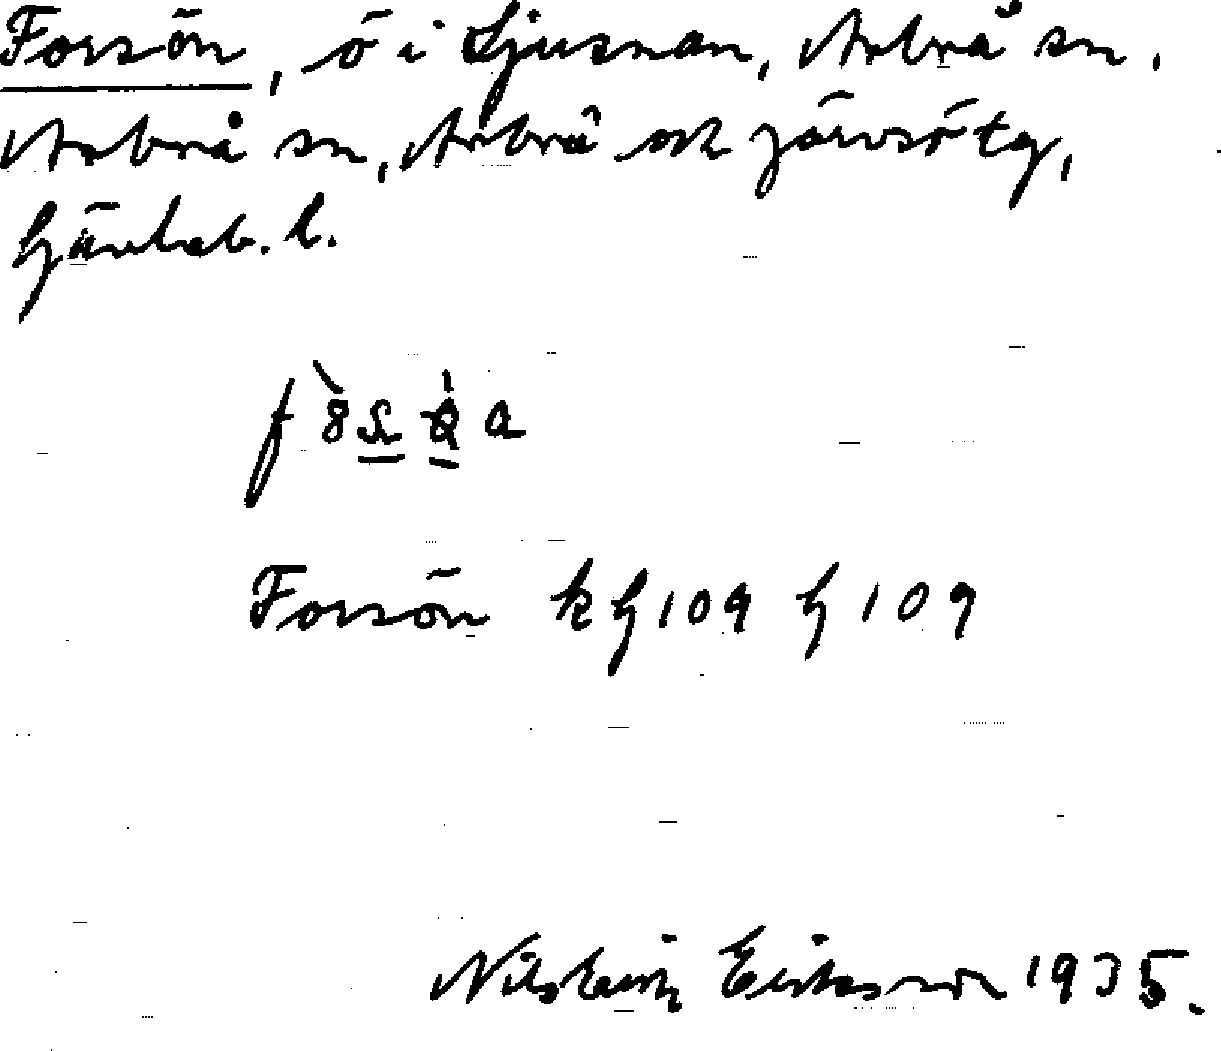 Forsön, ö i Ljusnan, Arbrå sn.
Arbrå sn, Arbrå och Järvsö tg,
Gävleb. l.
Forsön k G 109 G 109
Nils Eriksson 1935.